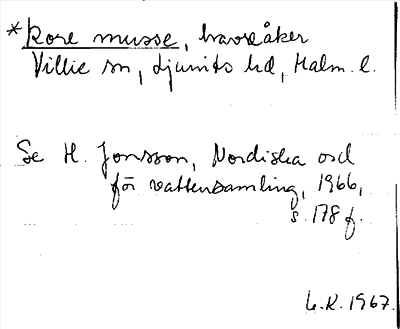 *kore musse, havreåker
Villie sn, Ljunits hd, Malm. l.
Se H. Jonsson, Nordiska ord
för vattensamling, 1966,
s. 178 f.
L.R. 1967.